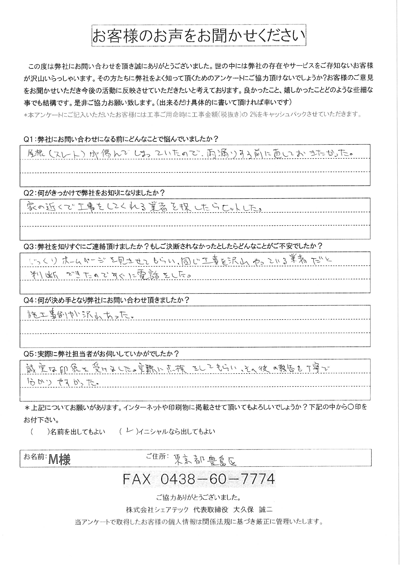 お客様のお声をお聞かせください
この度は弊社にお問い合わせを頂き誠にありがとうございます。世の中には弊社の存在やサービスをご存知ないお客様
が沢山いらっしゃいます。その方たちに弊社をよく知って頂くためのアンケートにご協力頂けないでしょうか?お客様のご意見
をお聞かせいただき今後の活動に反映させていただきたいと考えております。良かったこと、嬉しかったことどのような些細な
事でも結構です。是非ご協力お願い致します。(出来るだけ具体的に書いて頂ければ幸いです)
*本アンケートにご記入いただいたお客様には工事ご用命時に工事金額(税抜き)の2%をキャッシュバックさせていただきます。
Q1:弊社にお問い合わせになる前にどんなことで悩んでいましたか?
屋根(スレート)が傷んでしまっていたので、雨漏りする前に直しておきたかった。
Q2:何がきっかけで弊社をお知りになりましたか?
家の近くで工事をしてくれる業者を探したらヒットした。
Q3:弊社を知りすぐにご連絡頂けましたか?もしご決断されなかったとしたらどんなことがご不安でしたか?
じっくりホームページを見させてもらい、同じ工事を沢山やっている業者だと
判断できたのですぐに電話をした。
Q4:何が決め手となり弊社にお問い合わせ頂きましたか?
施工事例が沢山あった。
Q5:実際に弊社担当者がお伺いしていかがでしたか?
誠実な印象を受けました。実際に点検をしてもらい、その後の報告も丁寧で
分かりやすかった。
*上記についてお願いがあります。インターネットや印刷物に掲載させて頂いてもよろしいでしょうか?下記の中から〇印を
お付下さい。
( )名前を出してもよい (レ)イニシャルなら出してもよい
お名前:M様 ご住所: 東京都豊島区
FAX 0438-60-7774
ご協力ありがとうございました。
株式会社シェアテック 代表取締役 大久保 誠二
当アンケートで取得したお客様の個人情報は関係法規に基づき厳正に管理いたします。